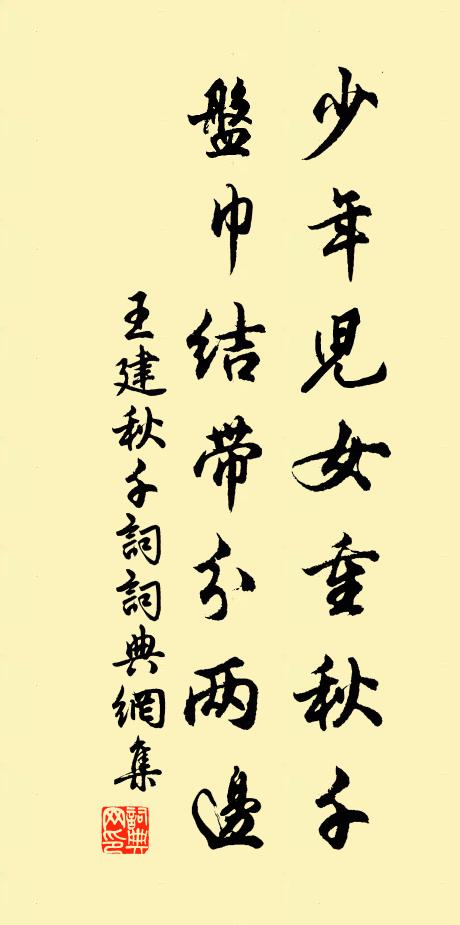 少年兒女重秋千
盤巾結帶分兩邊
王建秋千詞詞典網集
詞典网印